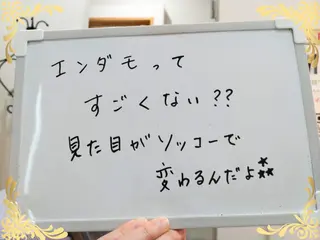 エンダモって
すごくない??
見た目がソッコーで
変わるんだよ